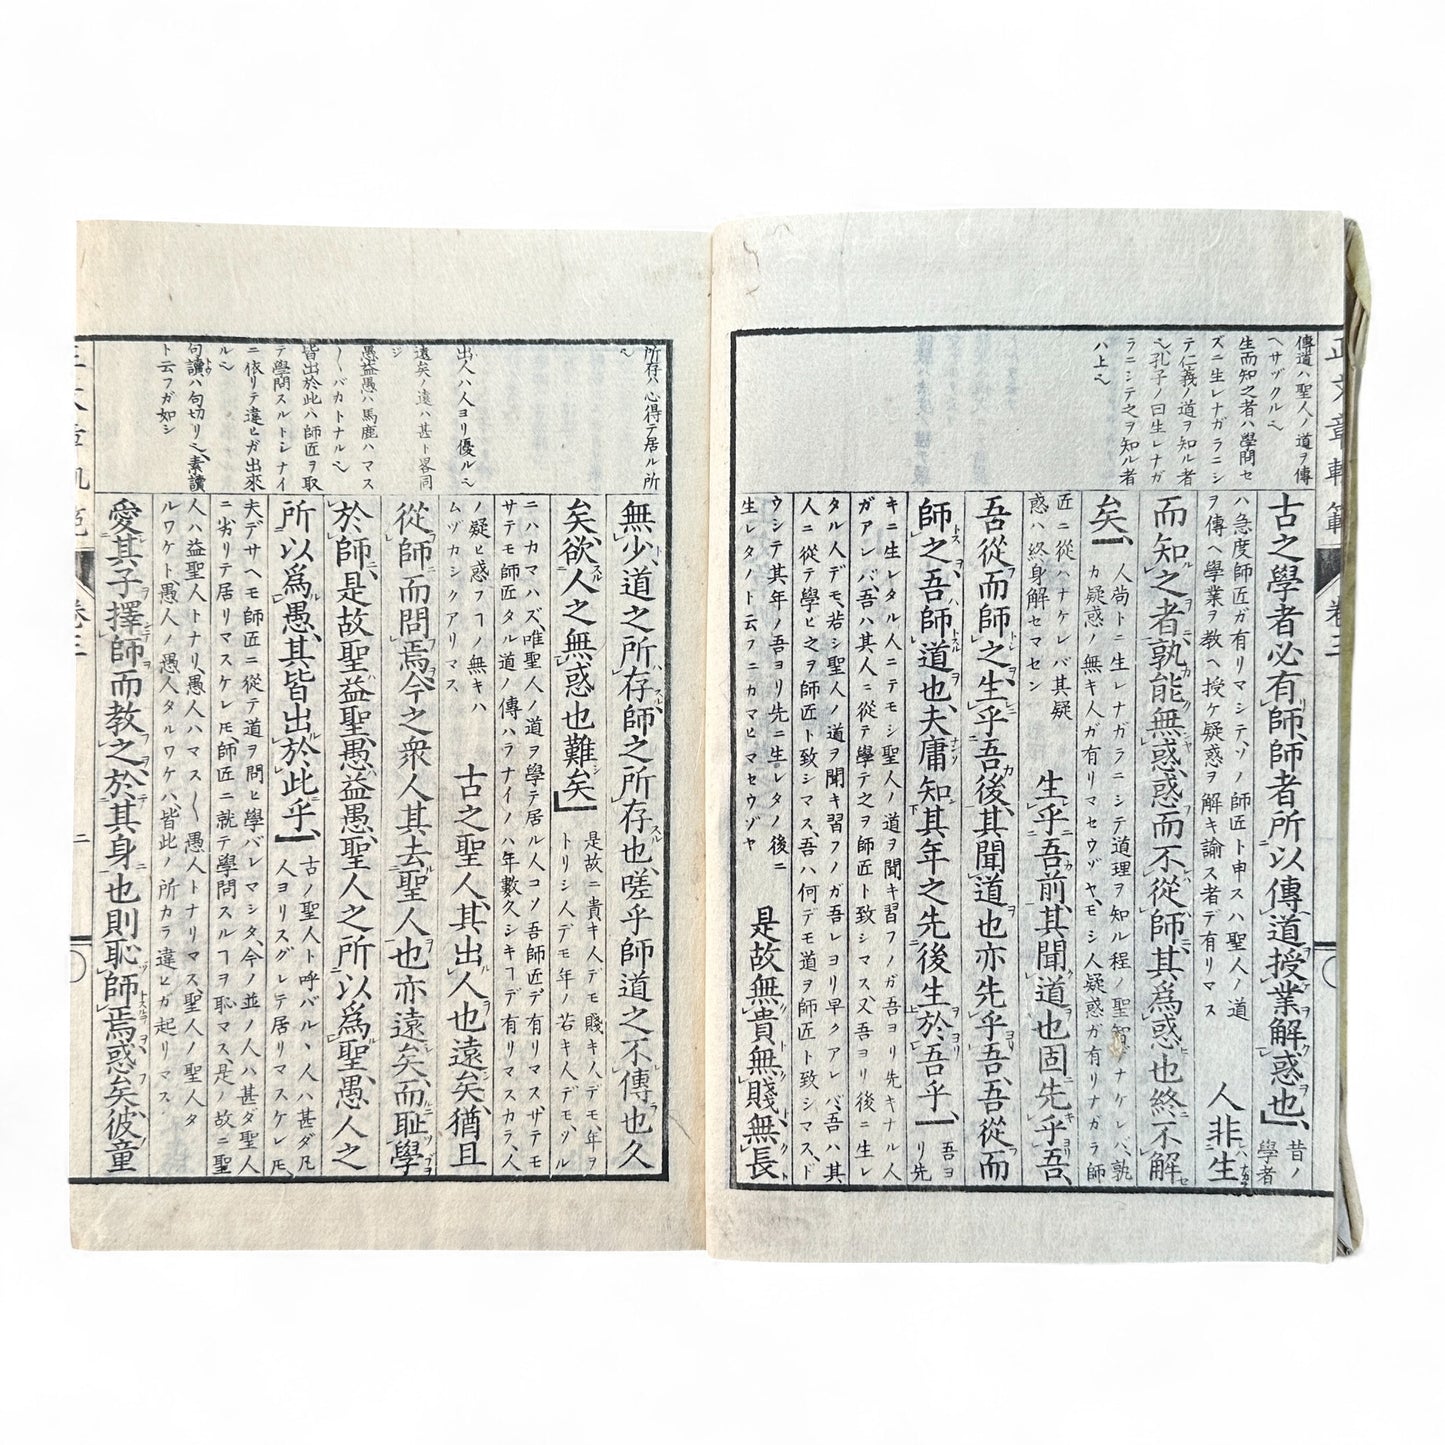 傳道ハ聖人ノ道ヲ傳
ヘサヅクル也
生而知之者ハ學問セ
ズニ生レナガラニシ
テ仁義ノ道ヲ知ル者
也孔子ノ曰生レナガ
ラニシテ之ヲ知ル者
ハ上也
古之學者必有師、師者所以傳道授業解惑也、昔ノ學者
ハ急度師匠ガ有リマシテ、ソノ師匠ト申スハ聖人ノ道
ヲ傳ヘ學業ヲ教ヘ授ケ疑惑ヲ解キ諭ス者デ有リマス
人非生
而知之者、孰能無惑、惑而不從師、其爲惑也終不解
矣、人尚トニ生レナガラニシテ道理ヲ知ル程ノ聖智ナケレバ、孰
カ疑惑ノ無キ人ガ有リマセウゾヤ、モシ人疑惑ガ有リナガラ師
匠ニ從ハナケレバ其疑
惑ハ終身解セマセン
生乎吾前、其聞道也固先乎吾、
吾從而師之、生乎吾後、其聞道也亦先乎吾、吾從而
師之、吾師道也、夫庸知其年之先後生於吾乎、吾ヨリ先
キニ生レタル人ニテモシ聖人ノ道ヲ聞キ習フノガ吾ヨリ先キナル人
ガアレバ、吾ハ其人ニ從テ學テ之ヲ師匠ト致シマス、又吾ヨリ後ニ生レ
タル人デモ、若シ聖人ノ道ヲ聞キ習フノガ吾レヨリ早クアレバ、吾ハ其
人ニ從テ學ビ之ヲ師匠ト致シマス、吾ハ何テモ道ヲ師匠ト致シマス、ド
ウシテ其年ノ吾ヨリ先ニ生レタノ後ニ
生レタノト云フニカマヒマセウゾヤ
是故無貴無賤、無長
正文章軌範 卷三
所存ハ心得テ居ル所
也
出人ハ人ヨリ優ル也
遠矣ノ遠ハ甚ト畧同
シ
愚益愚ハ馬鹿ハマス
〱バカトナル也
皆出於此ハ師匠ヲ取
テ學問スルトシナイ
ニ依リテ違ヒガ出來
ル也
句讀ハ句切リ也、素讀
ト云フガ如シ
無少、道之所存、師之所存也、嗟乎師道之不傳也久
矣、欲人之無惑也難矣、是故ニ貴キ人デモ賤キ人デモ、年ヲ
トリシ人デモ年ノ若キ人デモ、ソレ
ニハカマハズ、唯聖人ノ道ヲ學テ居ル人コソ吾師匠デ有リマスサテモ
サテモ師匠タル道ノ傳ハラナイノハ年數久シキヿデ有リマスカラ、人
ノ疑ヒ惑フヿノ無キハ
ムヅカシクアリマス
古之聖人、其出人也遠矣、猶且
從師而問焉、今之衆人其去聖人也亦遠矣、而耻學
於師、是故聖益聖、愚益愚、聖人之所以爲聖、愚人之
所以爲愚、其皆出於此乎、古ノ聖人ト呼バルヽ人ハ甚ダ凡
人ヨリスグレテ居リマスケレ𪜈、
夫デサヘモ師匠ニ從テ道ヲ問ヒ學バレマシタ、今ノ並ノ人ハ甚ダ聖人
ニ劣リテ居リマスケレ𪜈師匠ニ就テ學問スルヿヲ恥マス、是ノ故ニ聖
人ハ益聖人トナリ愚人ハマス〱愚人トナリマス、聖人ノ聖人タ
ルワケト愚人ノ愚人タルワケハ、皆此ノ所カラ違ヒガ起リマス
愛其子擇師而教之、於其身也則恥師焉、惑矣、彼童
卷三 二